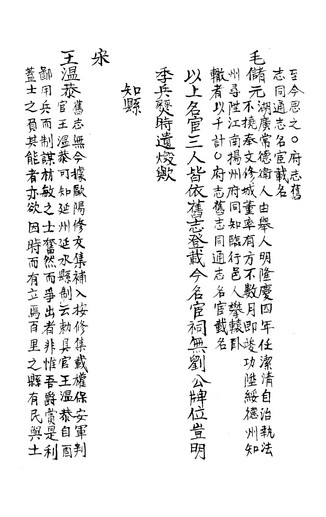 至今思之○府志舊
志同通志名宦載名
毛儲元湖廣常德衛人由舉人明隆慶四年任潔清自治執法
不撓奉文修城董率有方不數月即竣功陞綏德州知
州尋陞江南揚州府同知臨行邑人攀轅臥
轍者以千計○府志舊志同通志名宦載名
以上名宦三人皆依舊志登載今名宦祠無劉公牌位豈明
季兵燹時遺燬歟
知縣
宋
王溫恭舊志無今據歐陽修文集補入按修集載權保安軍判
官王溫恭可知延州延水縣制云勅具官王溫恭自西
鄙用兵而制謀材敏之士奮然而爭出者非惟吾爵賞是利
蓋士之負其能者亦欲因時而有立焉百里之縣有民與土